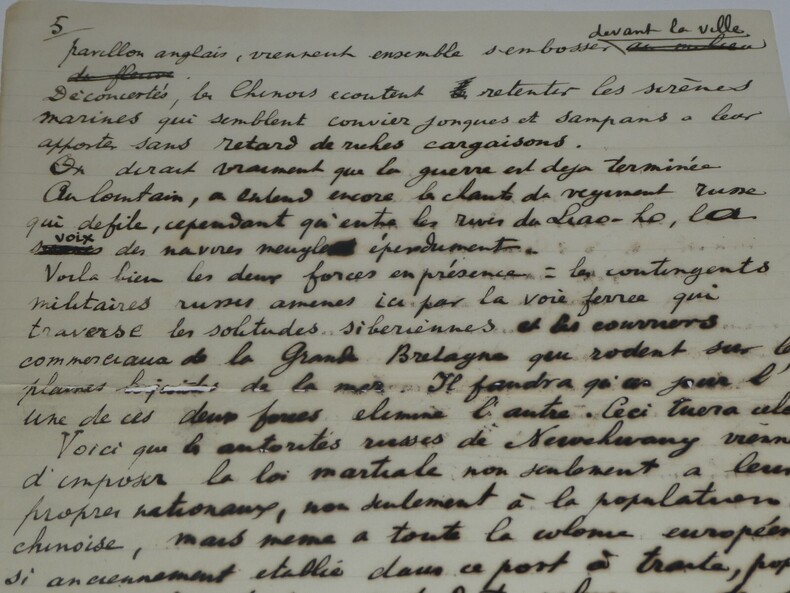 5
devant la ville
pavillon anglais, viennent ensemble s'embosser au milieu
du fleuve.
Déconcertés, les Chinois ecoutent retentir les sirènes
marines qui semblent convier jonques et sampans a leur
apporter sans retard de riches cargaisons.
On dirait vraiment que la guerre est deja terminée
Au lointain, on entend encore le chant du regiment russe
qui defile, cependant qu'entre les rives du Liao-ho, la
voix des navires meugle éperdument.
Voila bien les deux forces en présence = les contingents
militaires russes amenes ici par la voie ferree qui
traverse les solitudes siberiennes et les courriers
commerciaux de la Grande Bretagne qui rodent sur le
plaines de la mer. Il faudra qu'un jour l'
une de ces deux forces elimine l'autre. Ceci tuera cela
Voici que les autorités russes de Newchwang vienne
d'imposer la loi martiale non seulement a leur
propres nationaux, non seulement à la population
chinoise, mais meme a toute la colonie européen
si anciennement etablie dans ce port à traité, pop